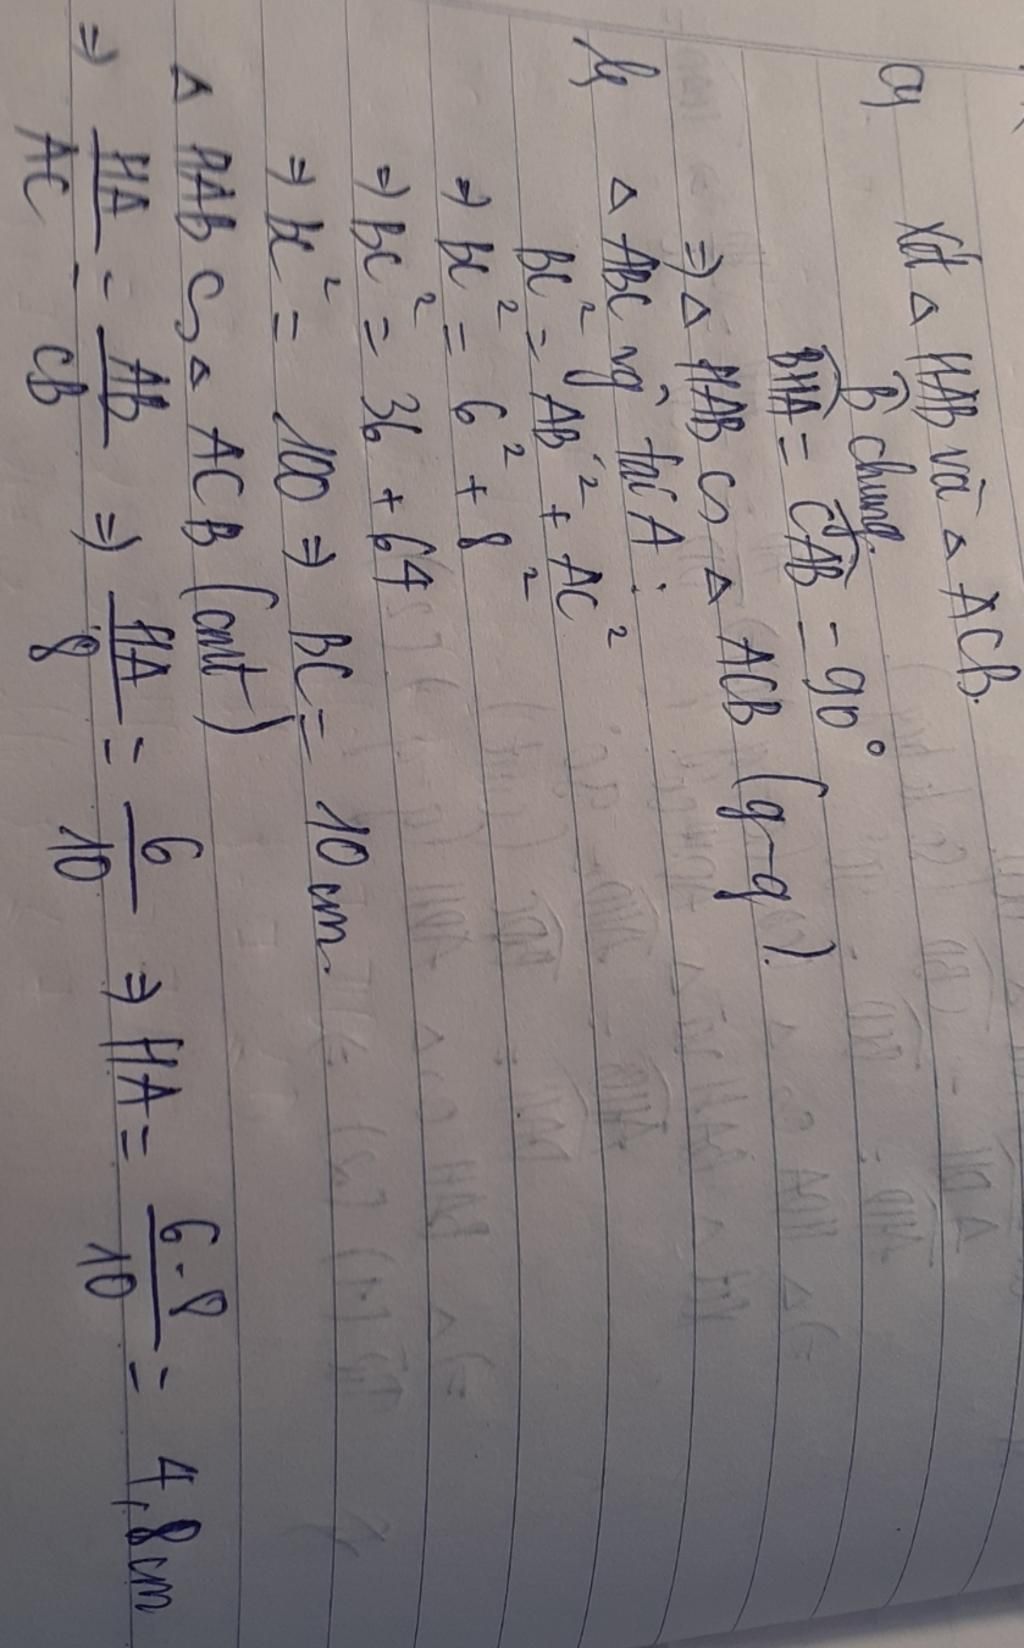 a, Xét △ HAB và △ ACB.
B̂ chung.
BHA = CAB = 90°
⇒ △ HAB ∽ △ ACB (g-g).
b, △ ABC vg tại A:
BC² = AB² + AC²
⇒ BC² = 6² + 8²
⇒ BC² = 36 + 64
⇒ BC² = 100 ⇒ BC = 10 cm.
△ HAB ∽ △ ACB (cmt)
⇒ HA/AC = AB/CB ⇒ HA/8 = 6/10 ⇒ HA = 6.8/10 = 4,8cm